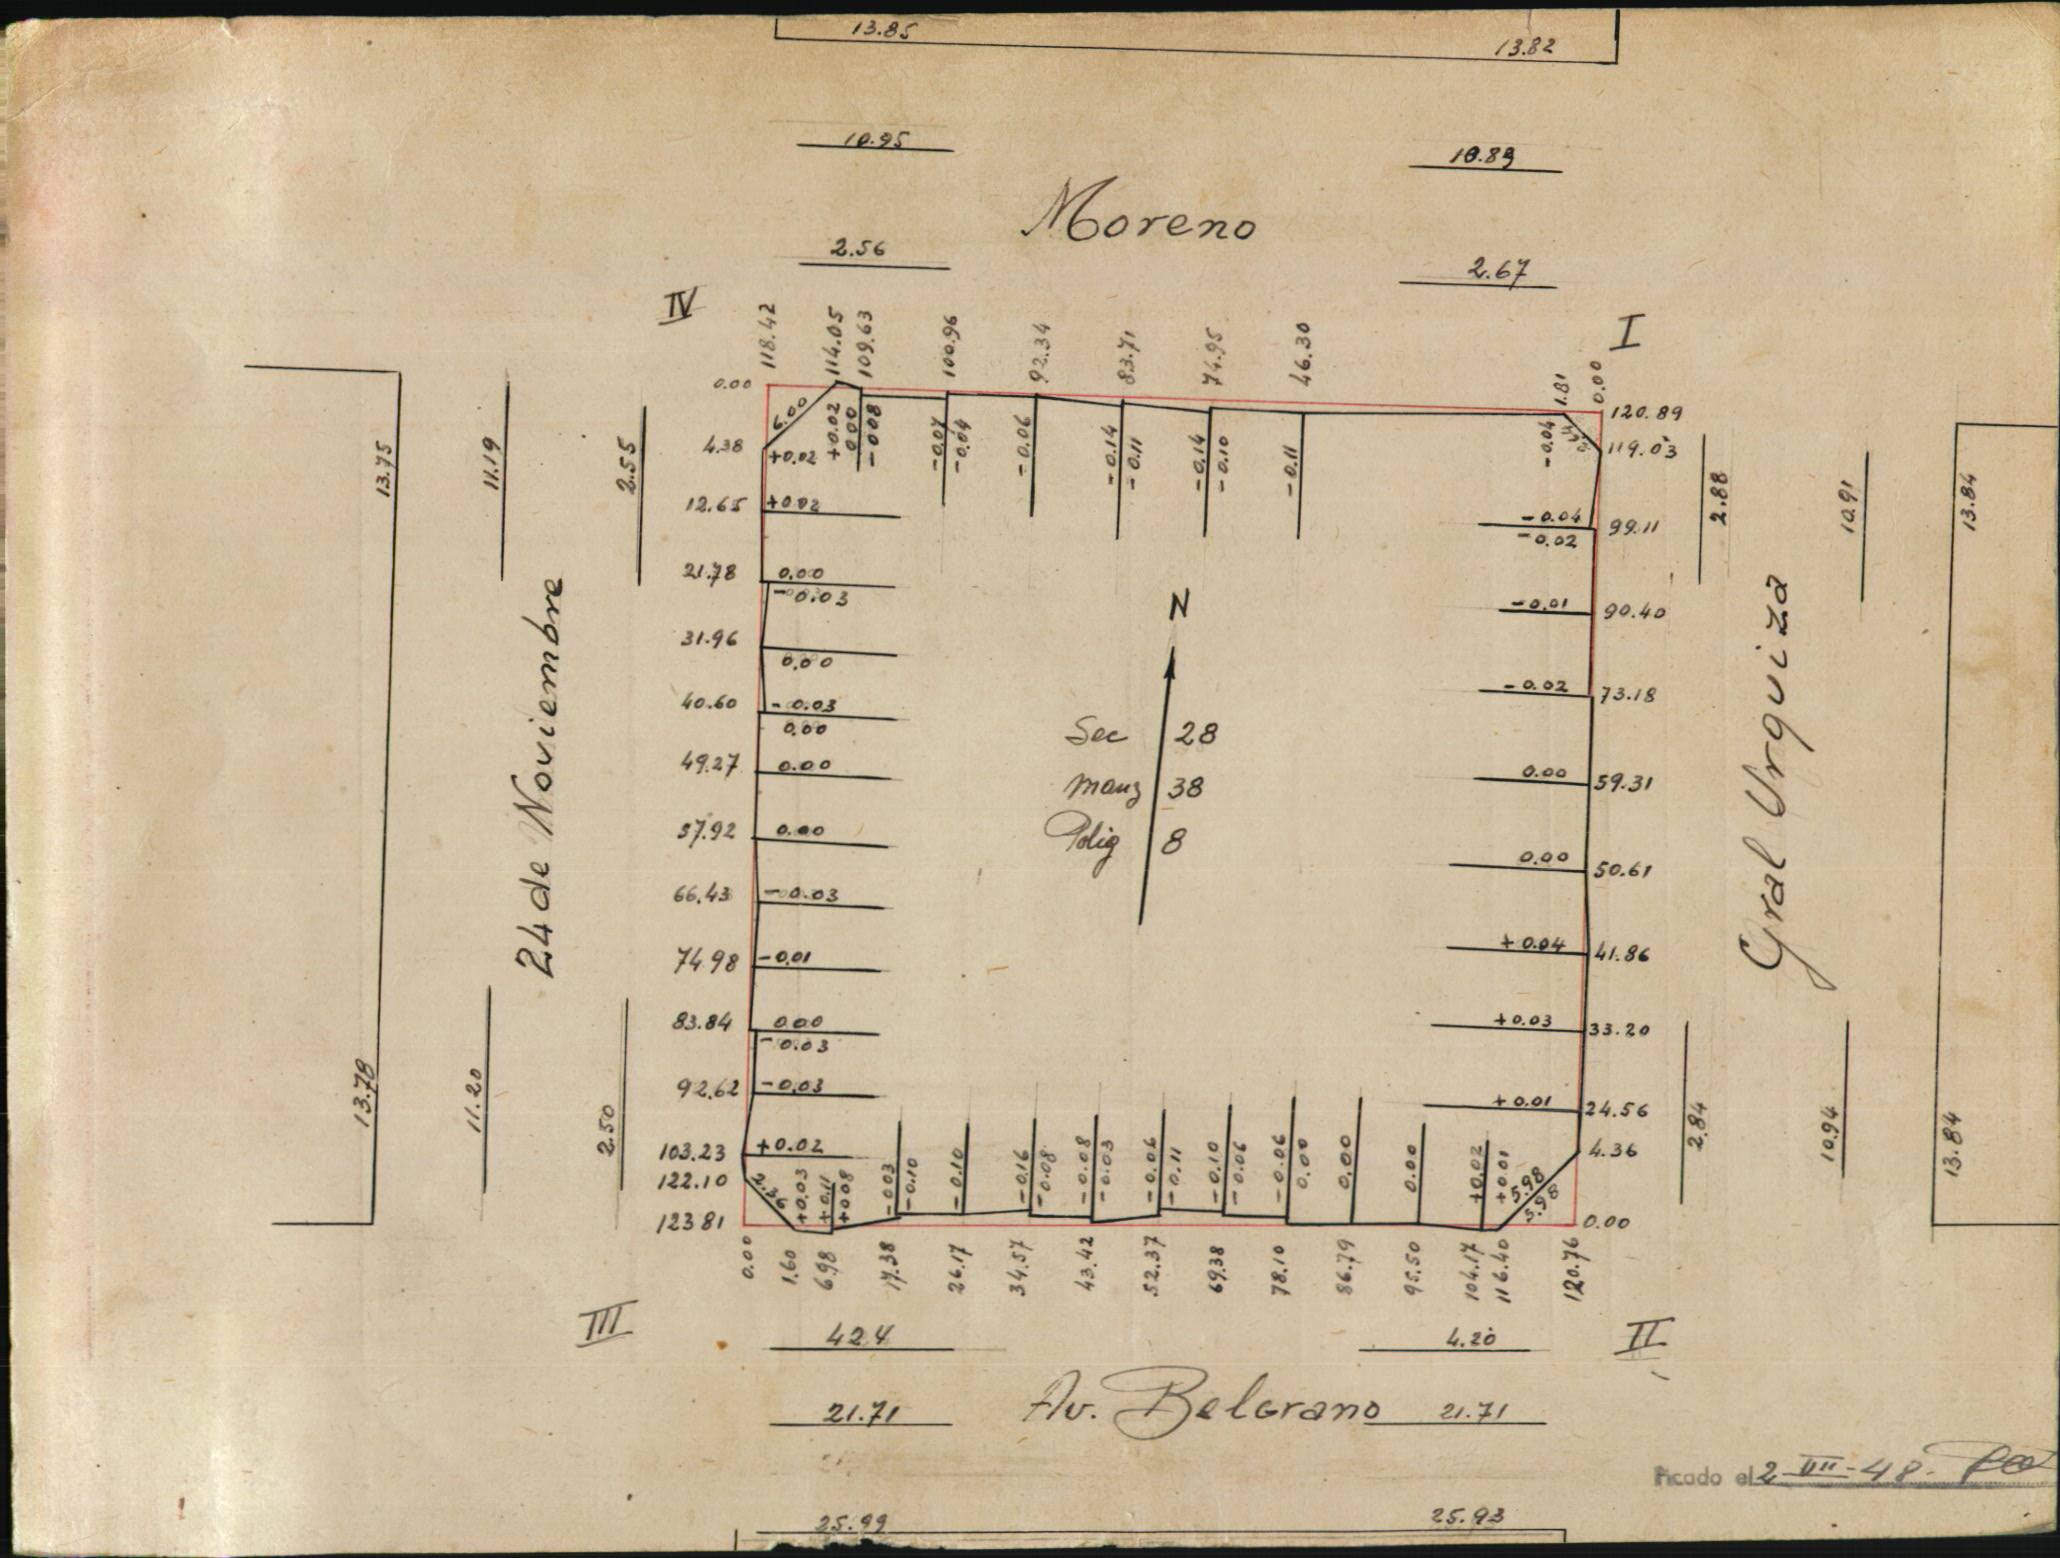 13.85
13.82
10.95
10.89
Moreno
2.56
2.67
IV
I
118.42
114.05
109.63
100.96
92.34
83.71
74.95
46.30
1.81
0.00
0.00
120.89
6.00
+0.02
0.00
-0.08
-0.07
-0.04
-0.06
-0.14
-0.11
-0.14
-0.10
-0.11
-0.04
4.38
+0.02
119.03
12.65
+0.02
-0.04
-0.02
99.11
21.78
0.00
-0.03
-0.01
90.40
31.96
0.00
-0.02
73.18
40.60
-0.03
0.00
49.27
0.00
0.00
59.31
57.92
0.00
0.00
50.61
66.43
-0.03
+0.04
41.86
74.98
-0.01
83.84
0.00
-0.03
+0.03
33.20
92.62
-0.03
+0.01
24.56
103.23
+0.02
4.36
122.10
123.81
0.00
+0.03
+0.11
+0.08
-0.03
-0.10
-0.10
-0.16
-0.08
-0.08
-0.03
-0.06
-0.11
-0.10
-0.06
-0.06
0.00
0.00
0.00
+0.02
+0.01
5.98
5.98
0.00
1.60
6.98
17.38
26.17
34.57
43.42
52.37
69.38
78.10
86.79
95.50
104.17
116.40
120.76
13.75
11.19
2.55
24 de Noviembre
13.78
11.20
2.50
N
Sec 28
Manz 38
Polig 8
2.88
10.91
13.84
Gral Urquiza
2.84
10.94
13.84
III
II
42.4
4.20
21.71
Av. Belgrano
21.71
25.99
25.93
Picado el 2-VII-48